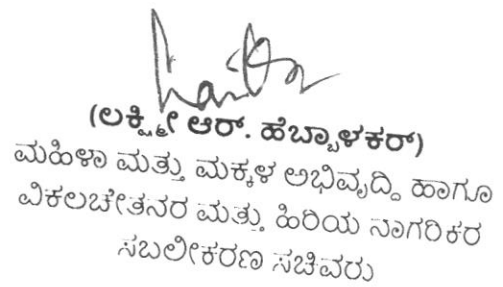 (ಲಕ್ಷ್ಮೀ ಆರ್. ಹೆಬ್ಬಾಳಕರ್)
ಮಹಿಳಾ ಮತ್ತು ಮಕ್ಕಳ ಅಭಿವೃದ್ಧಿ ಹಾಗೂ
ವಿಕಲಚೇತನರ ಮತ್ತು ಹಿರಿಯ ನಾಗರಿಕರ
ಸಬಲೀಕರಣ ಸಚಿವರು